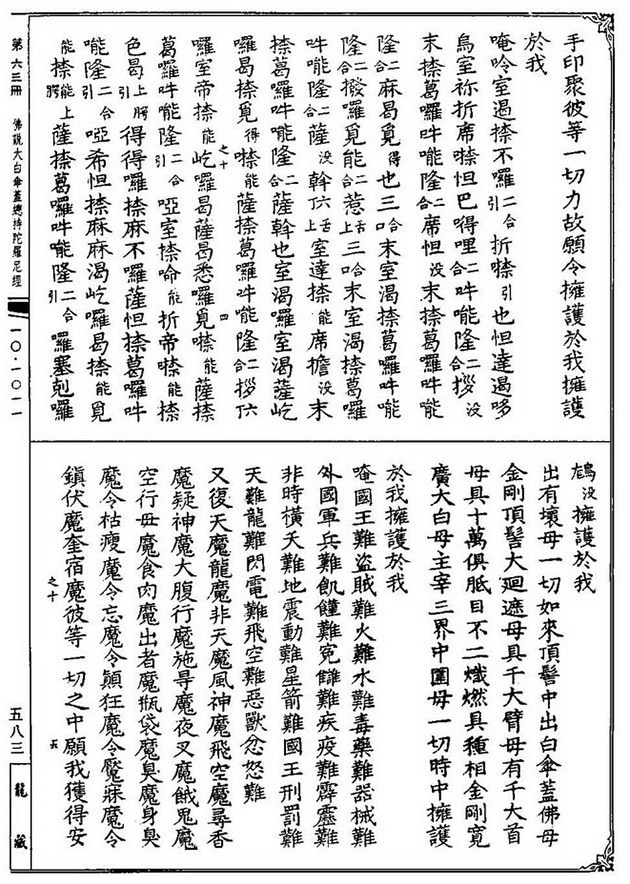 手印聚彼等一切力故願令擁護於我擁護
於我
唵唥室遏捺不囉二合引折㗚引也怛達遏哆
烏室祢折席㗚怛巴得哩二合吽能隆二合拶没
末捺葛囉吽能隆二合席怛没末捺葛囉吽能
隆二合麻曷覓得也三合末室渴捺葛囉吽能
隆二合撥囉覓能二合惹上舌三合末室渴捺葛囉
吽能隆二合薩没斡上舌室達捺能席擔没末
捺葛囉吽能隆二合薩斡也室渴囉室渴薩屹
囉曷捺覓得㗚能薩捺葛囉吽能隆二合拶
囉室帝捺能屹囉曷薩悉囉覓㗚能薩捺
葛囉吽能隆二合引啞室捺命能折帝㗚能捺
色曷上腭引得得囉捺麻不囉薩怛捺葛囉吽
能隆二合引啞希怛捺麻麻渴屹囉曷捺能覓
能捺上腭薩捺葛囉吽能隆二合引囉塞剋囉
鴆没擁護於我
出有壞母一切如來頂髻中出白傘蓋佛母
金剛頂髻大迴遮母具千大臂母有千大首
母具十萬俱胝目不二熾燃具種相金剛寬
廣大白母主宰三界中圍母一切時中擁護
於我擁護於我
唵國王難盜賊難火難水難毒藥難器械難
外國軍兵難飢饉難冤讎難疾疫難霹靂難
非時橫夭難地震動難星箭難國王刑罰難
天難龍難閃電難飛空難惡獸忿怒難
又復天魔龍魔非天魔風神魔飛空魔尋香
魔疑神魔大腹行魔施㝵魔夜叉魔餓鬼魔
空行母魔食肉魔出者魔瓶袋魔臭魔身臭
魔令枯瘦魔令忘魔令顛狂魔令魘寐魔令
鎮伏魔奎宿魔彼等一切之中願我獲得安
之十
四
之十
五
第六三冊
佛說大白傘蓋總持陀羅尼經
一〇·一〇一一
五八三
龍藏